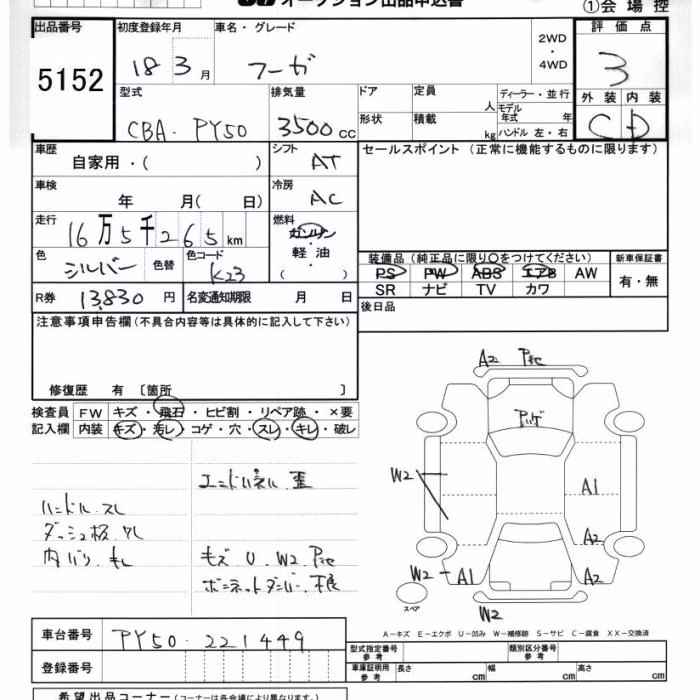 オークション出品申込書
①会場控
出品番号 初度登録年月 車名・グレード 評価点
5152 18 3月 フーガ 2WD・4WD 3
型式 排気量 ドア 定員 人 ディーラー・並行 外装 内装
CBA・PY50 3500cc 形状 積載 kg モデル年式 年 ハンドル 左・右 C D
車歴 自家用・( ) シフト AT セールスポイント(正常に機能するものに限ります)
車検 年 月( 日) 冷房 AC
走行 16万5千265km 燃料 ガソリン・軽油・( )
色 シルバー 色替 色コード K23 装備品(純正品に限り○をつけてください) 新車保証書
PS PW ABS エアB AW 有・無
SR ナビ TV カワ
R券 13,830円 名変通知期限 月 日 後日品
注意事項申告欄(不具合内容等は具体的に記入して下さい)
修復歴 有 [箇所 ]
検査員 FW キズ・飛石・ヒビ割・リペア跡・×要
記入欄 内装 キズ・汚レ・コゲ・穴・スレ・キレ・破レ
エンドパネル 歪
ハンドル スレ
ダッシュ板 ワレ
内バリ キレ キズ U W2 P他
ボンネットダンパー不良
A2 P他
W2
A1
A2
W2 A1 A2
スペア W2
A-キズ E-エクボ U-凹み W-補修跡 S-サビ C-腐食 XX-交換済
車台番号 PY50-221449
型式指定番号 参考 類別区分番号 参考
登録番号 車庫証明用 参考 長さ cm 幅 cm 高さ cm
希望出品コーナー(コーナーは各会場により異なります。)